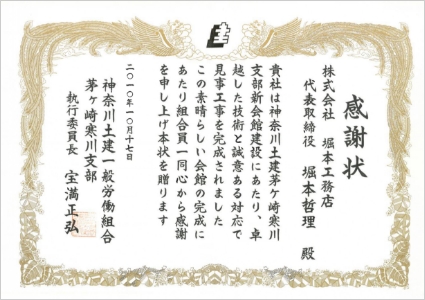 感謝状
株式会社 堀本工務店
代表取締役 堀本哲理 殿
貴社は神奈川土建茅ヶ崎寒川
支部新会館建設にあたり、卓
越した技術と誠意ある対応で
見事工事を完成されました
この素晴らしい会館の完成に
あたり組合員一同心から感謝
を申し上げ本状を贈ります
二〇一〇年十月十七日
神奈川土建一般労働組合
茅ヶ崎寒川支部
執行委員長 宝満正弘